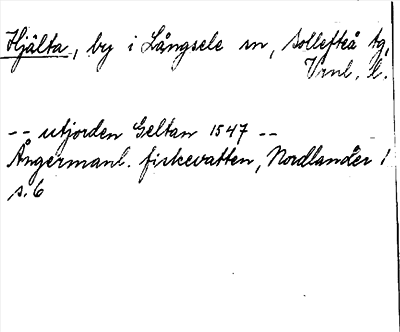 Hjälta, by i Långsele sn, Sollefteå tg,
Vrnl. l.
-- utjorden Geltan 1547 --
Ångermanl. fiskevatten, Nordlander 1
s. 6